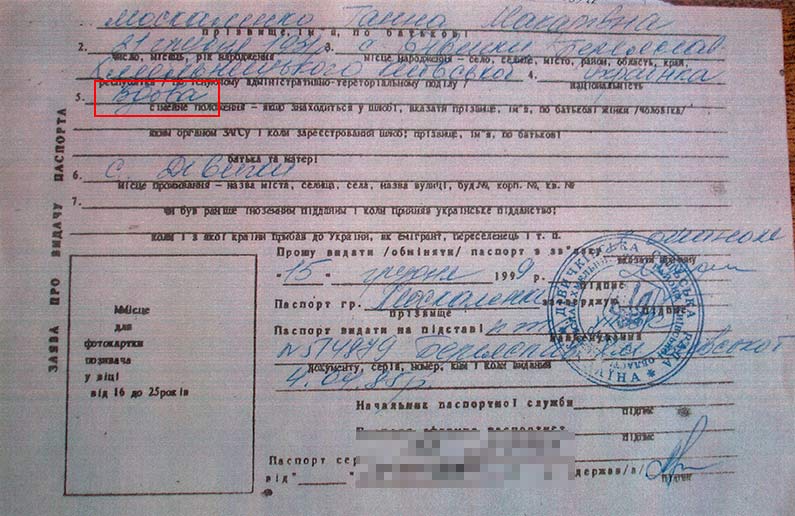 Москаленко Ганна Макарівна
1.
прізвище, ім'я, по батькові
2. 21 грудня 1931 3. с. Дівички Переяслав
число, місяць, рік народження місце народження – село, селище, місто, район, область, край,
Київської 4. Українка
республіка /по існуючому адміністративно-територіальному поділу/ національність
5. Вдова
сімейне положення – якщо знаходиться у шлюбі, вказати прізвище, ім'я, по батькові жінки /чоловіка/
яким органом ЗАГСу і коли зареєстрований шлюб; прізвище, ім'я, по батькові
батька та матері
6. с. Дівички
місце проживання – назва міста, селища, села, назва вулиці, буд.№, корп. №, кв. №
7.
чи був раніше іноземним підданим і коли прийняв українське підданство;
коли і з якої країни прибав до України, як емігрант, переселенець і т. п.
ЗАЯВА ПРО ВИДАЧУ ПАСПОРТА
Прошу видати /обміняти/ паспорт в зв'язку з обміном
вказати причину
"15" грудня 1999 р.
підпис
Паспорт гр. Москаленко затверджую
прізвище підпис
Паспорт видати на підставі
найменування
№574879
документу, серія, номер, ким і коли виданий
4.04.85р
Начальник паспортної служби
підпис
Паспорт сер держав/а/
від" " підпис
ММісце
для
фотокартки
позивача
у віці
від 16 до 25років